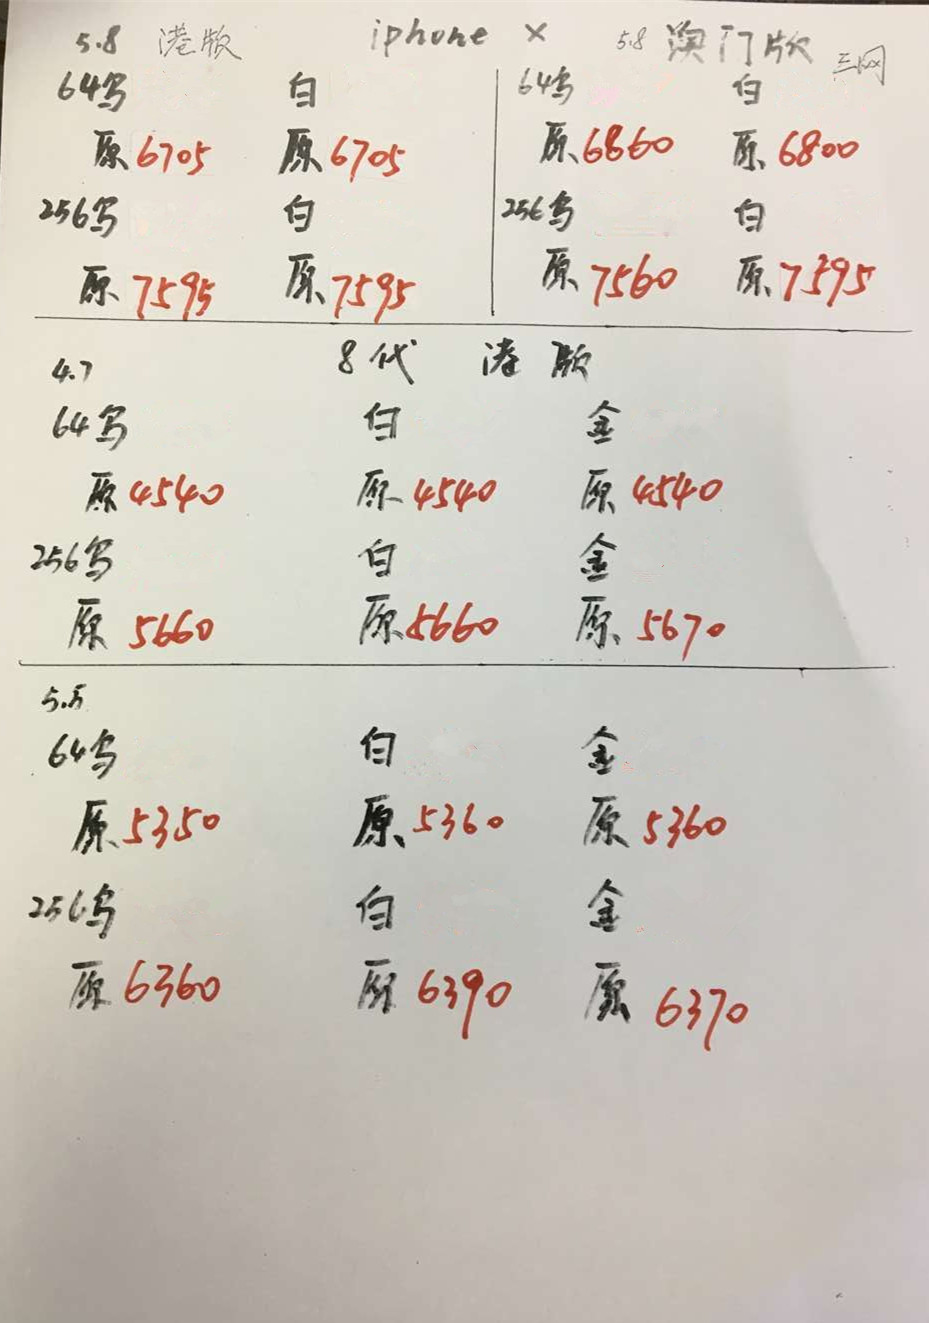 5.8 港版 iphone X 5.8 澳门版 三网
64乌 白 64乌 白
原6705 原6705 原6860 原6800
256乌 白 256乌 白
原7595 原7595 原7560 原7395
4.7 8代 港版
64乌 白 金
原4540 原4540 原4540
256乌 白 金
原5660 原5660 原5670
5.5
64乌 白 金
原5350 原5360 原5360
256乌 白 金
原6360 原6390 原6370